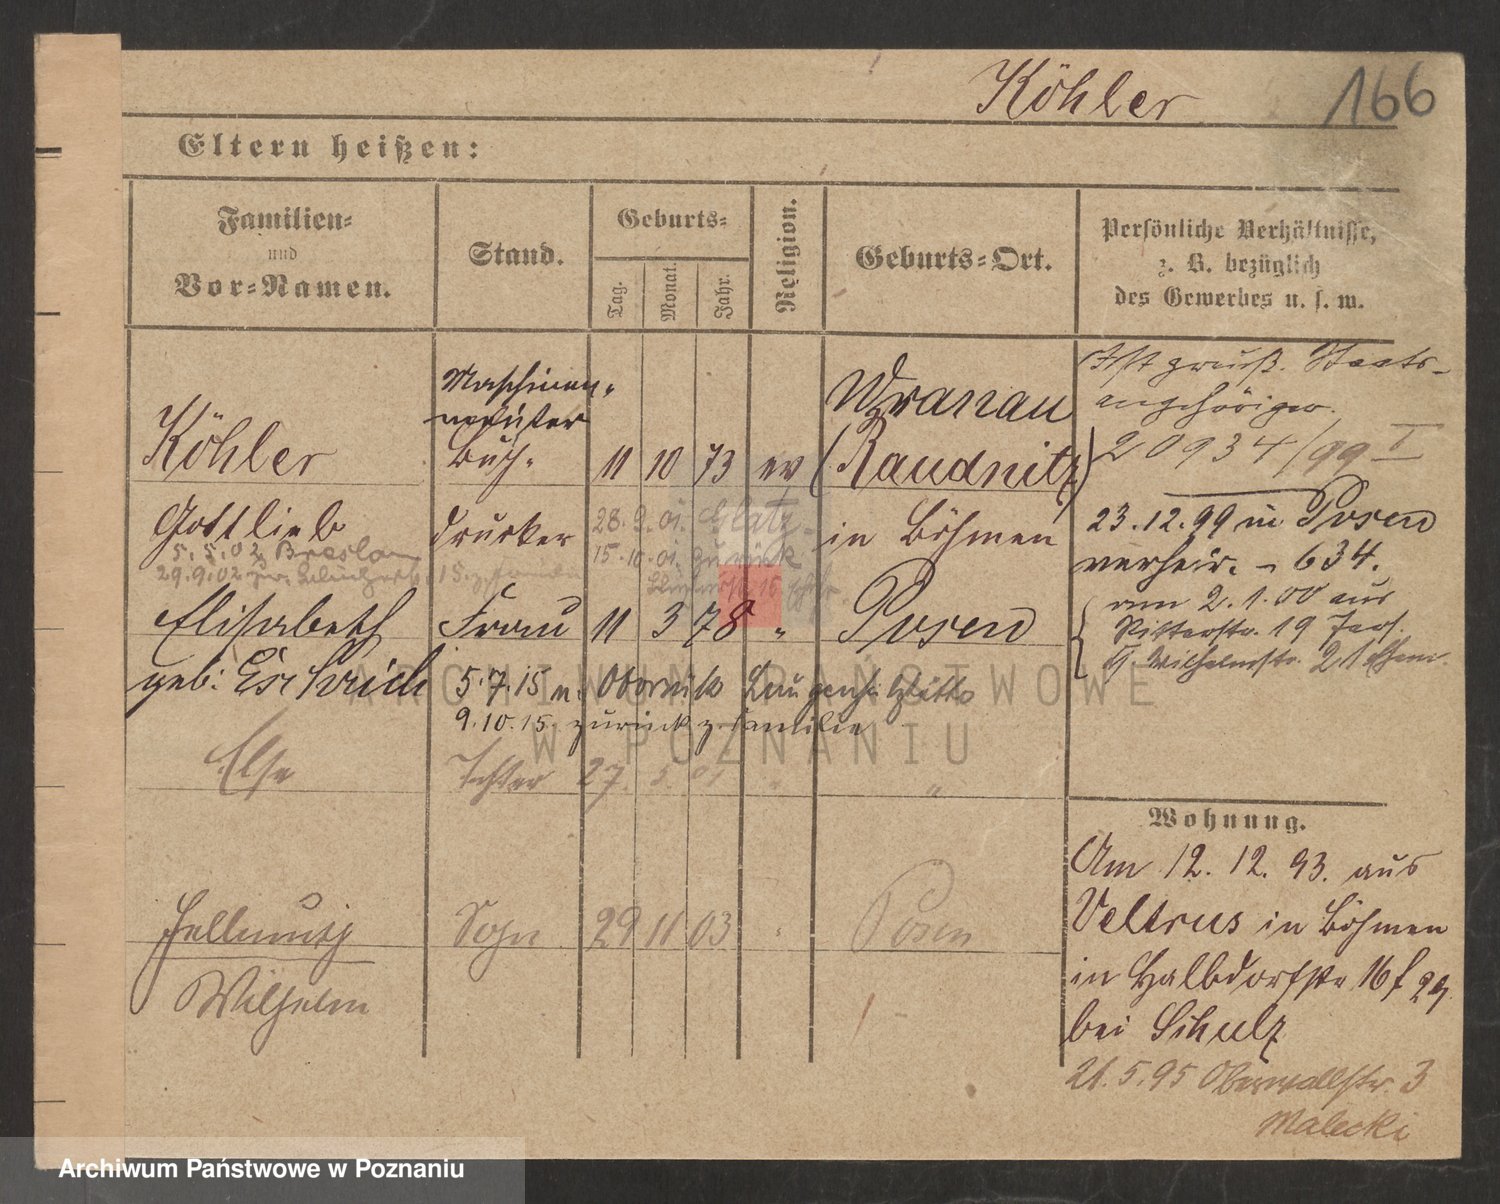 Köhler
166
Eltern heißen:
Familien-
und
Vor-Namen.
Stand.
Geburts-
Tag.
Monat.
Jahr.
Religion.
Geburts-Ort.
Persönliche Verhältnisse,
z. B. bezüglich
des Gewerbes u. s. w.
Köhler
Gottlieb
Maschinen-
meister
Buch-
drucker
11 10 73 ev
Wranau
(Raudnitz)
in Böhmen
Ist preuß. Staats-
angehöriger.
20934/99 I
28.9.01. Glatz
15.10.01. zurück
5.5.02 Breslau
29.9.02
23.12.99 in Posen
verheir. - 634.
am 2.1.00 aus
Ritterstr. 19
Wilhelmstr.
Elisabeth
geb:
Frau 11 3 78 " Posen
5.7.15 n. Obornik
9.10.15. zurück z. Familie
Else Tochter 27. 01 "
Hellmuth
Wilhelm
Sohn 29 11 03 Posen
Wohnung.
Am 12.12.93. aus
Veltrus in Böhmen
in Halbdorfstr 16
bei Schulz
21.5.95 Oberwallstr. 3
Malecki
ARCHIWUM PAŃSTWOWE
W POZNANIU
Archiwum Państwowe w Poznaniu